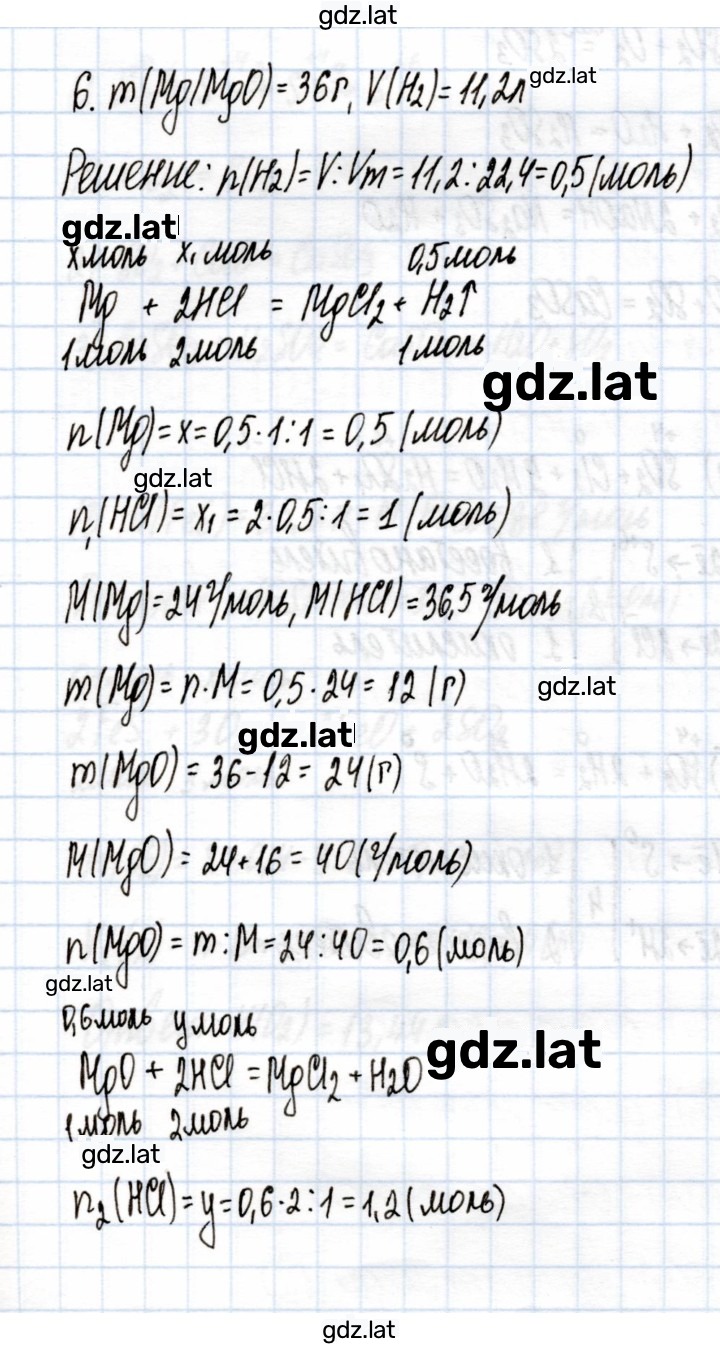 gdz.lat
6. m(Mg/MgO) = 36г, V(H₂) = 11,2л gdz.lat
Решение: n(H₂) = V : Vm = 11,2 : 22,4 = 0,5 (моль)
gdz.lat
x моль x₁ моль 0,5 моль
Mg + 2HCl = MgCl₂ + H₂↑
1 моль 2 моль 1 моль
gdz.lat
n(Mg) = x = 0,5 · 1 : 1 = 0,5 (моль)
gdz.lat
n₁(HCl) = x₁ = 2 · 0,5 : 1 = 1 (моль)
M(Mg) = 24 г/моль, M(HCl) = 36,5 г/моль
m(Mg) = n · M = 0,5 · 24 = 12 (г) gdz.lat
gdz.lat
m(MgO) = 36 - 12 = 24 (г)
M(MgO) = 24 + 16 = 40 (г/моль)
n(MgO) = m : M = 24 : 40 = 0,6 (моль)
gdz.lat
0,6 моль y моль
gdz.lat
MgO + 2HCl = MgCl₂ + H₂O
1 моль 2 моль
gdz.lat
n₂(HCl) = y = 0,6 · 2 : 1 = 1,2 (моль)
gdz.lat